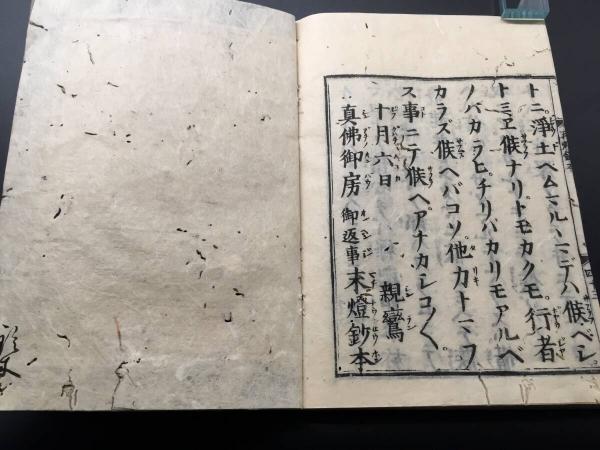 トニ。淨土ヘムマルヽニテハ候ベシ
トミヱ候ナリ。トモカクモ。行者
ノハカラヒ。チリバカリモアルベ
カラズ候ヘバコソ。他力トマフ
ス事ニテ候ヘ。アナカシコ〱。
十月六日 親鸞
真佛御房 御返事 末燈鈔本